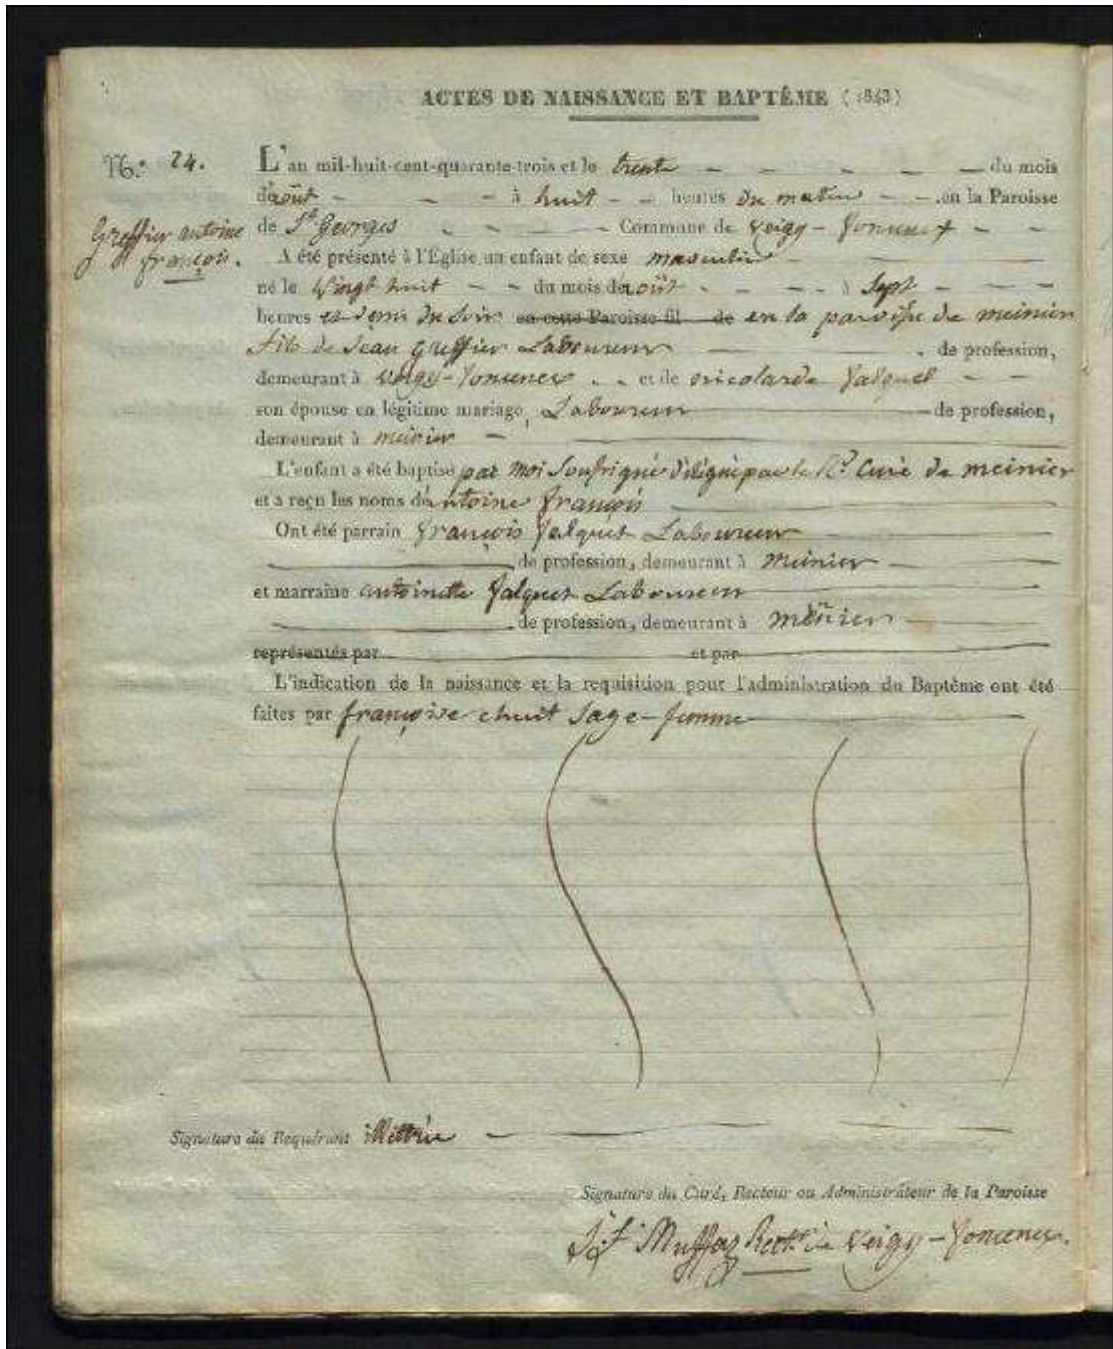 ACTES DE NAISSANCE ET BAPTÊME (1843)
N.° 24.
Greffier antoine
françois.
L'an mil-huit-cent-quarante-trois et le trente du mois
d'août à huit heures du matin en la Paroisse
de St Georges Commune de Veigy-foncenex
A été présenté à l'Église un enfant de sexe masculin
né le vingt huit du mois d'août à Sept
heures et demi du soir en cette Paroisse fil de en la paroisse de meinier
fils de Jean greffier Laboureur de profession,
demeurant à Veigy-foncenex et de nicolarde falquet
son épouse en légitime mariage, Laboureur de profession,
demeurant à meinier
L'enfant a été baptisé par moi soussigné délégué par le Rd Curé de meinier
et a reçu les noms d'antoine françois
Ont été parrain françois falquet Laboureur
de profession, demeurant à meinier
et marraine antoinette falquet Laboureur
de profession, demeurant à meinier
représentés par et par
L'indication de la naissance et la requisition pour l'administration du Baptême ont été
faites par françoise chuit Sage-femme
Signature du Requérant illettrée
Signature du Curé, Recteur ou Administrateur de la Paroisse
Muffaz Rectr de Veigy-foncenex.